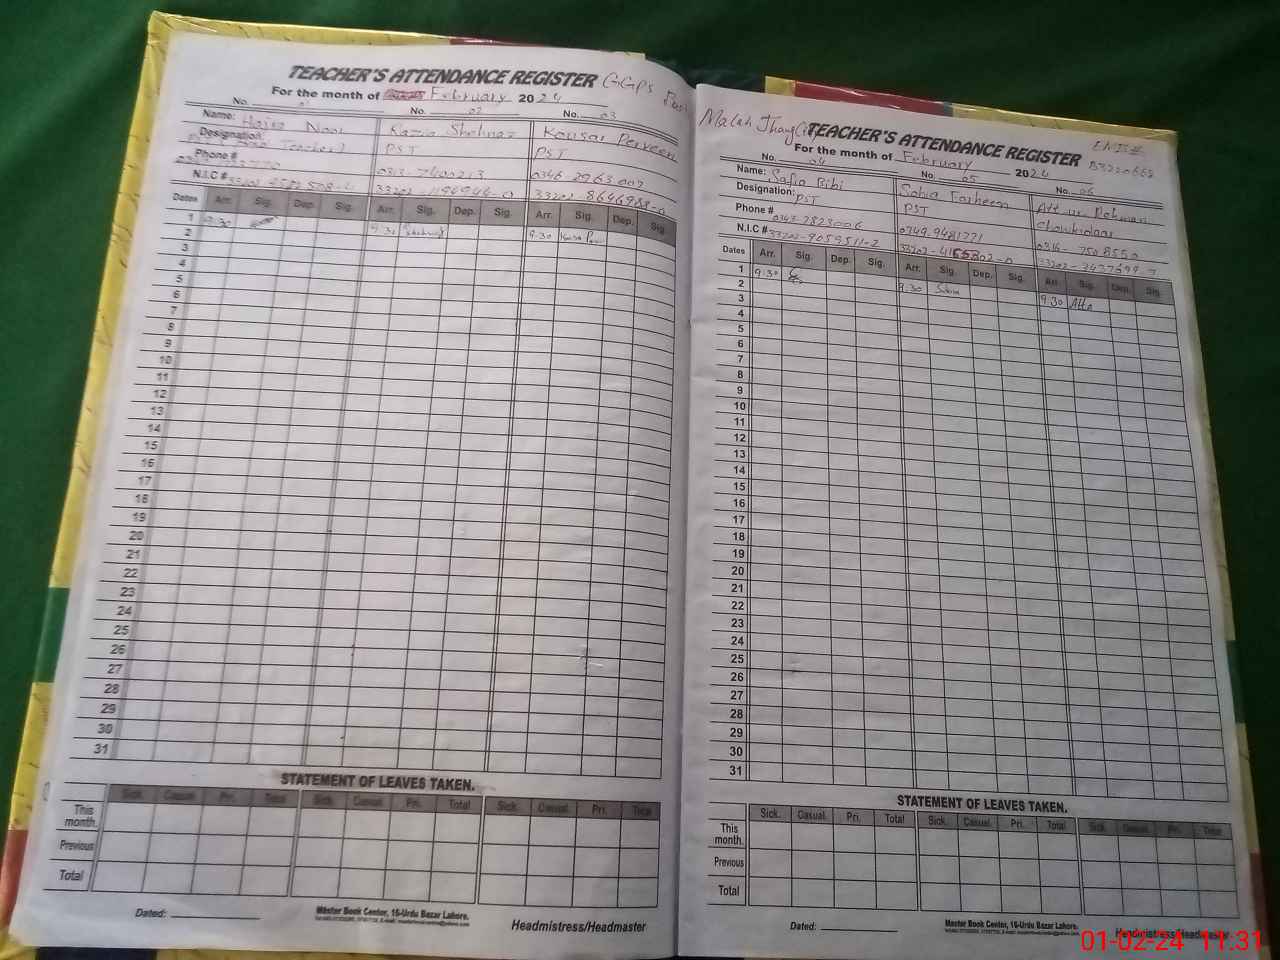 TEACHER'S ATTENDANCE REGISTER GGPS
For the month of February 2024
No. 01 No. 02 No. 03
Name: Razia Shehnaz Kousar Perveen
Designation: (Head Teacher) PST PST
Phone # 0313-7400213 0346-2963007
N.I.C # 33202-1194944-0 33202-8646988-0
Dates Arr. Sig. Dep. Sig. Arr. Sig. Dep. Sig. Arr. Sig. Dep. Sig.
1 9:30 9:30 9:30
2
3
4
5
6
7
8
9
10
11
12
13
14
15
16
17
18
19
20
21
22
23
24
25
26
27
28
29
30
31
STATEMENT OF LEAVES TAKEN.
Sick. Casual. Pri. Total Sick. Casual. Pri. Total Sick. Casual. Pri. Total
This month.
Previous
Total
Dated:
Master Book Center, 16-Urdu Bazar Lahore.
Headmistress/Headmaster
Malah Jhang
TEACHER'S ATTENDANCE REGISTER EMIS#
For the month of February 2024
No. 04 No. 05 No. 06
Name: Safia Bibi Sobia Farheen Att ur Rehman
Designation: PST PST Chowkidaar
Phone # 0343-7823006 0349-9481271
N.I.C # 33202-9059511-2
Dates Arr. Sig. Dep. Sig. Arr. Sig. Dep. Sig. Arr. Sig. Dep. Sig.
1 9:30 9:30 9:30 Atta
2
3
4
5
6
7
8
9
10
11
12
13
14
15
16
17
18
19
20
21
22
23
24
25
26
27
28
29
30
31
STATEMENT OF LEAVES TAKEN.
Sick. Casual. Pri. Total Sick. Casual. Pri. Total Sick. Casual. Pri. Total
This month.
Previous
Total
Dated:
Master Book Center, 16-Urdu Bazar Lahore.
Headmistress/Headmaster
01-02-24 11:31